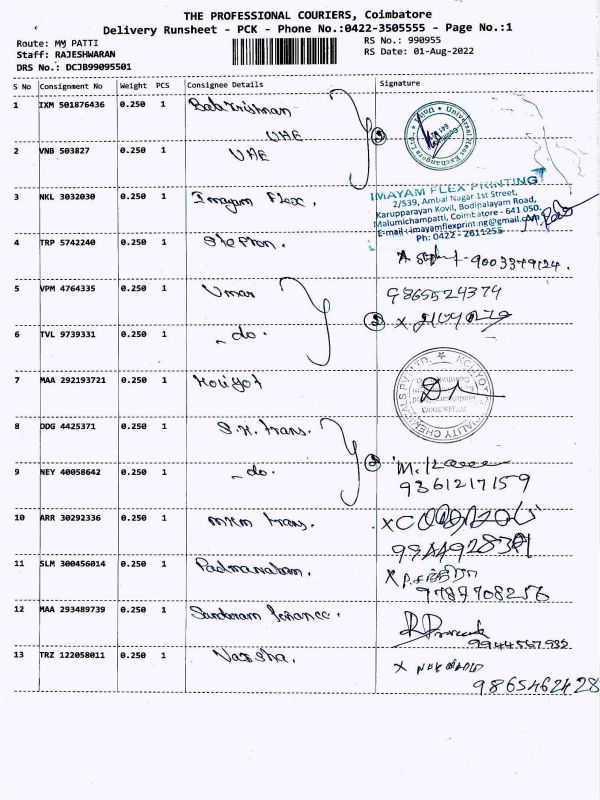 THE PROFESSIONAL COURIERS, Coimbatore
Delivery Runsheet - PCK - Phone No.:0422-3505555 - Page No.:1
Route: MM PATTI
RS No.: 990955
Staff: RAJESHWARAN
RS Date: 01-Aug-2022
DRS No.: DCJB99095501
S No Consignment No Weight PCS Consignee Details Signature
1 IXM 501876436 0.250 1 Bala Krishnan
UAE
2 VNB 503827 0.250 1 UAE
Universal Heat Exchangers Ltd.,
3 NKL 3032030 0.250 1 Imayam Flex.
IMAYAM FLEX PRINTING
2/539, Ambal Nagar 1st Street,
Karupparayan Kovil, Bodipalayam Road,
Malumichampatti, Coimbatore - 641 050.
E-mail: imayamflexprinting@gmail.com
Ph: 0422 - 2611255
4 TRP 5742240 0.250 1
9003379124.
5 VPM 4764335 0.250 1 Umar
9865524374
6 TVL 9739331 0.250 1 - do.
2
7 MAA 292193721 0.250 1 Koliyot
KOLIYOT SPECIALITY CHEMICALS PVT LTD.
8 DDG 4425371 0.250 1 S.N. trans.
2
9 NEY 40058642 0.250 1 - do.
9361217159
10 ARR 30292336 0.250 1 MKM trans.
11 SLM 300456014 0.250 1 Padmanaban.
9787708256
12 MAA 293489739 0.250 1 Sundaram finance.
13 TRZ 122058011 0.250 1 Varsha.
9865462428